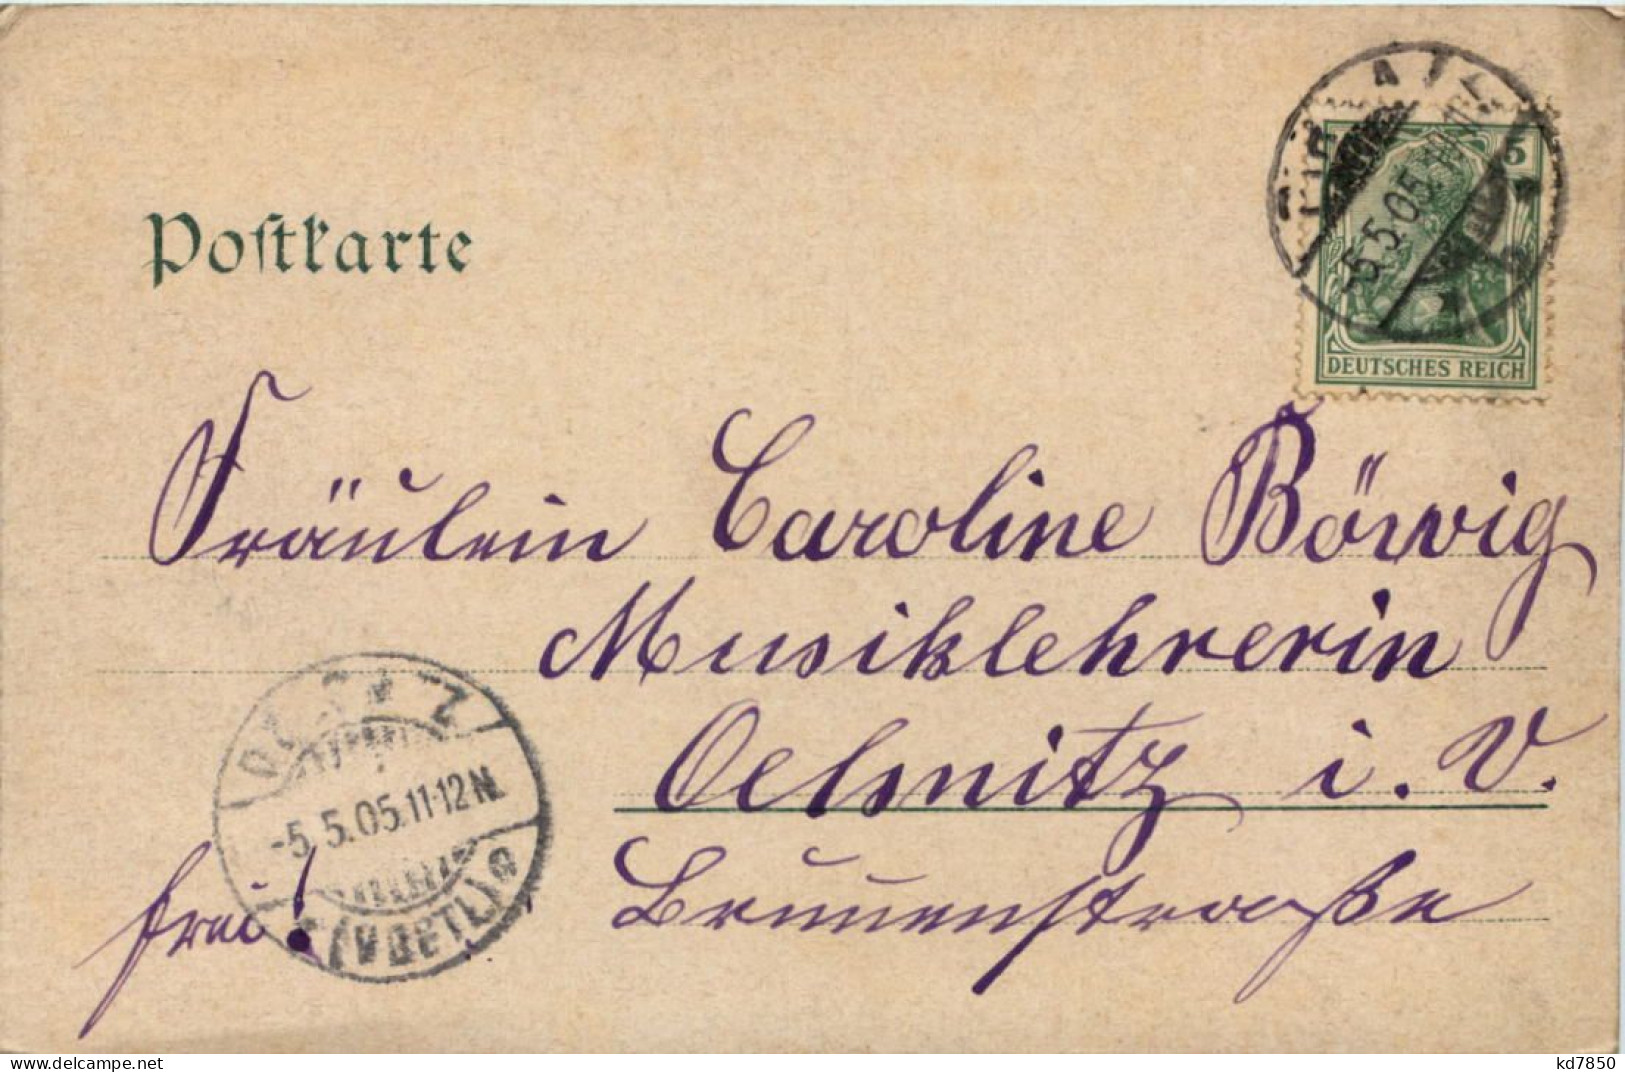 Postkarte
5
-5.5.05.
DEUTSCHES REICH
Fräulein Caroline Börwig
Musiklehrerin
Oelsnitz i. V.
Brunenstraße
frei!
-5.5.05.11-12N.
(VOGTL)
delcampe.net
kd7850